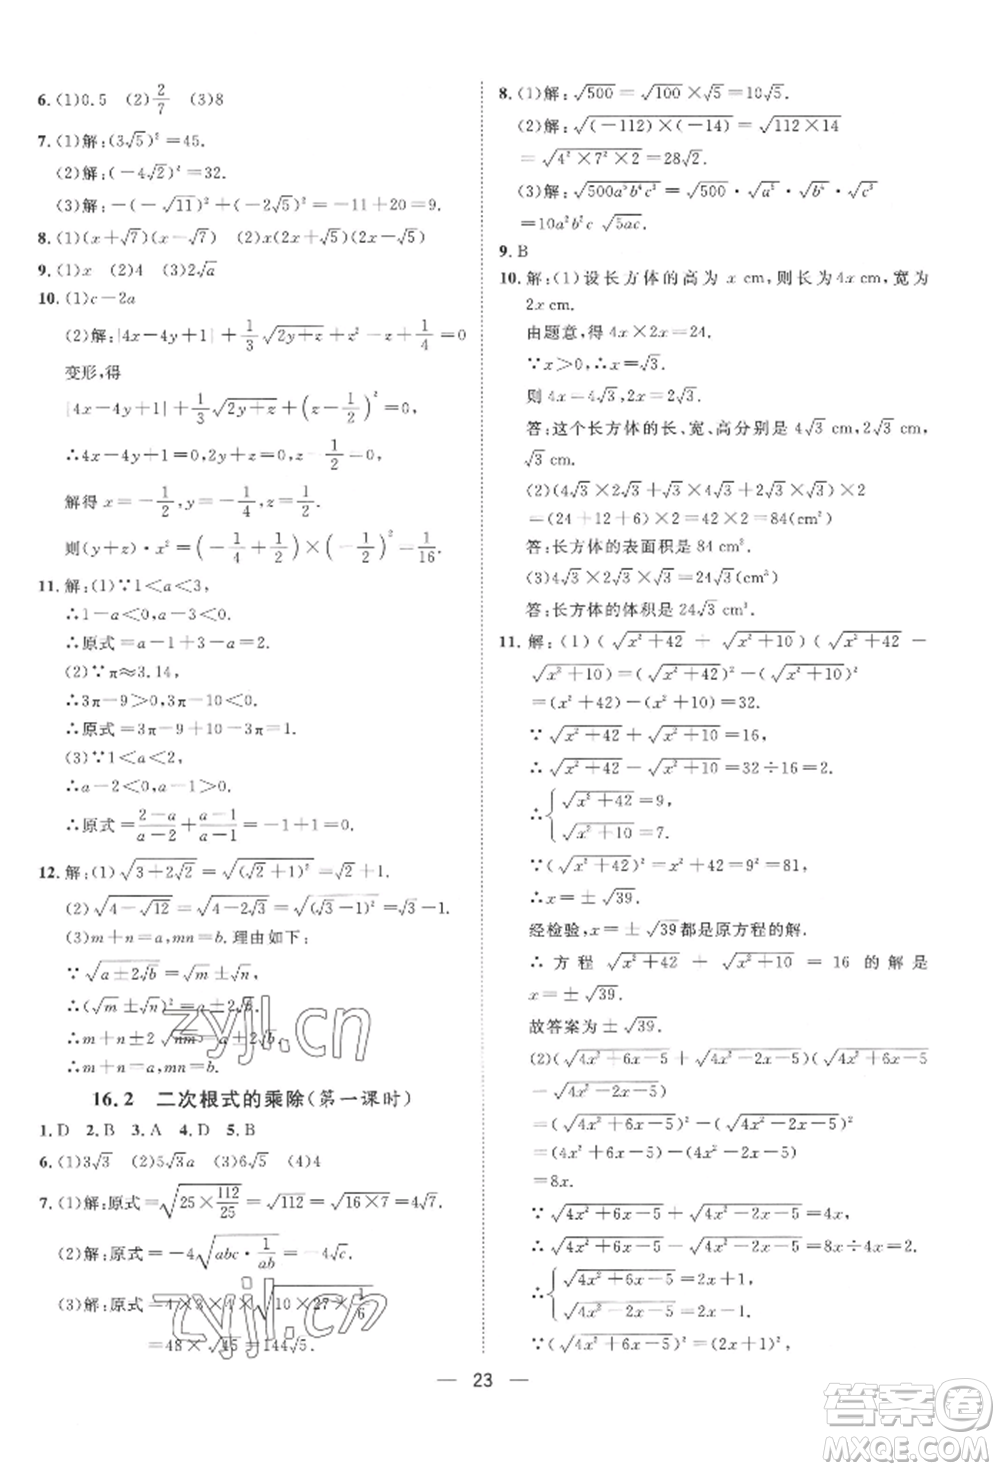 6. (1)0.5 (2)2/7 (3)8
7. (1)解:(3√5)²=45.
(2)解:(-4√2)²=32.
(3)解:-(-√11)²+(-2√5)²=-11+20=9.
8. (1)(x+√7)(x-√7) (2)x(2x+√5)(2x-√5)
9. (1)x (2)4 (3)2√a
10. (1)c-2a
(2)解:|4x-4y+1|+1/3√(2y+z)+z²-z+1/4=0
变形,得
|4x-4y+1|+1/3√(2y+z)+(z-1/2)²=0,
∴4x-4y+1=0,2y+z=0,z-1/2=0,
解得x=-1/2,y=-1/4,z=1/2,
则(y+z)·x²=(-1/4+1/2)×(-1/2)²=1/16.
11. 解:(1)∵1<a<3,
∴1-a<0,a-3<0,
∴原式=a-1+3-a=2.
(2)∵π≈3.14,
∴3π-9>0,3π-10<0,
∴原式=3π-9+10-3π=1.
(3)∵1<a<2,
∴a-2<0,a-1>0,
∴原式=(2-a)/(a-2)+(a-1)/(a-1)=-1+1=0.
12. 解:(1)√(3+2√2)=√((√2+1)²)=√2+1.
(2)√(4-√12)=√(4-2√3)=√((√3-1)²)=√3-1.
(3)m+n=a,mn=b.理由如下:
∵√(a±2√b)=√m±√n,
∴(√m±√n)²=a±2√b,
∴m+n±2√mn=a±2√b,
∴m+n=a,mn=b.
16.2 二次根式的乘除(第一课时)
1. D 2. B 3. A 4. D 5. B
6. (1)3√3 (2)5√3a (3)6√5 (4)4
7. (1)解:原式=√(25×112/25)=√112=√(16×7)=4√7.
(2)解:原式=-4√(abc·1/ab)=-4√c.
(3)解:原式=4×3×4×√(10×27×1/6)
=48×√45=144√5.
8. (1)解:√500=√100×√5=10√5.
(2)解:√((-112)×(-14))=√(112×14)
=√(4²×7²×2)=28√2.
(3)解:√(500a⁵b⁴c³)=√500·√a⁵·√b⁴·√c³
=10a²b²c√5ac.
9. B
10. 解:(1)设长方体的高为x cm,则长为4x cm,宽为
2x cm.
由题意,得4x×2x=24.
∵x>0,∴x=√3.
则4x=4√3,2x=2√3.
答:这个长方体的长、宽、高分别是4√3 cm,2√3 cm,
√3 cm.
(2)(4√3×2√3+√3×4√3+2√3×√3)×2
=(24+12+6)×2=42×2=84(cm²)
答:长方体的表面积是84 cm².
(3)4√3×2√3×√3=24√3(cm³)
答:长方体的体积是24√3 cm³.
11. 解:(1)(√(x²+42)+√(x²+10))(√(x²+42)-
√(x²+10))=(√(x²+42))²-(√(x²+10))²
=(x²+42)-(x²+10)=32.
∵√(x²+42)+√(x²+10)=16,
∴√(x²+42)-√(x²+10)=32÷16=2.
∴{√(x²+42)=9,
√(x²+10)=7.
∵(√(x²+42))²=x²+42=9²=81,
∴x=±√39.
经检验,x=±√39都是原方程的解.
∴方程√(x²+42)+√(x²+10)=16的解是
x=±√39.
故答案为±√39.
(2)(√(4x²+6x-5)+√(4x²-2x-5))(√(4x²+6x-5)
-√(4x²-2x-5))
=(√(4x²+6x-5))²-(√(4x²-2x-5))²
=(4x²+6x-5)-(4x²-2x-5)
=8x.
∵√(4x²+6x-5)+√(4x²-2x-5)=4x,
∴√(4x²+6x-5)-√(4x²-2x-5)=8x÷4x=2.
∴{√(4x²+6x-5)=2x+1,
√(4x²-2x-5)=2x-1.
∵(√(4x²+6x-5))²=(2x+1)²,
23
zyjl.cn
zyjl.cn
答案卷
MXQE.COM